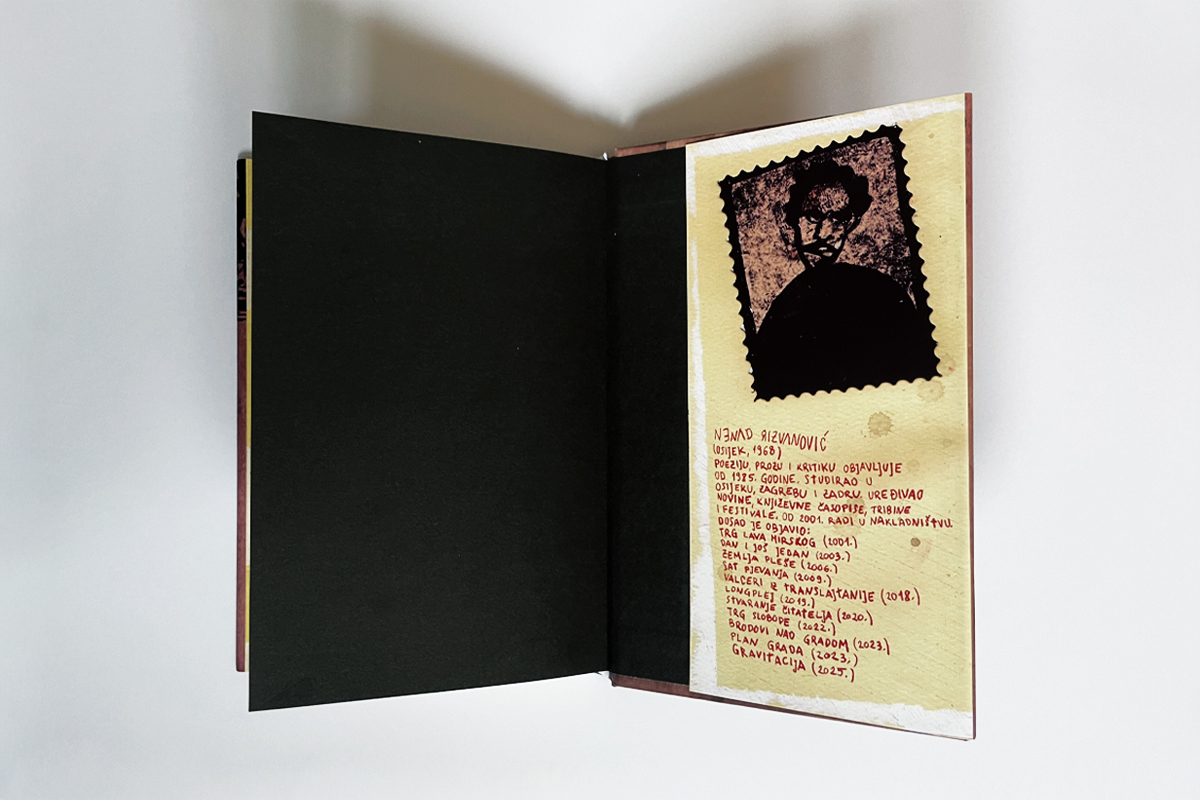 NENAD RIZVANOVIĆ
(OSIJEK, 1968)
POEZIJU, PROZU I KRITIKU OBJAVLJUJE
OD 1985. GODINE. STUDIRAO U
OSIJEKU, ZAGREBU I ZADRU. UREĐIVAO
NOVINE, KNJIŽEVNE ČASOPISE, TRIBINE
I FESTIVALE. OD 2001. RADI U NAKLADNIŠTVU.
DOSAD JE OBJAVIO:
TRG LAVA MIRSKOG (2001.)
DAN I JOŠ JEDAN (2003.)
ZEMLJA PLEŠE (2006.)
SAT PJEVANJA (2009.)
VALCERI IZ TRANSLAJTANIJE (2018.)
LONGPLEJ (2019.)
STVARANJE ČITATELJA (2020.)
TRG SLOBODE (2022.)
BRODOVI NAD GRADOM (2023.)
PLAN GRADA (2023.)
GRAVITACIJA (2025.)